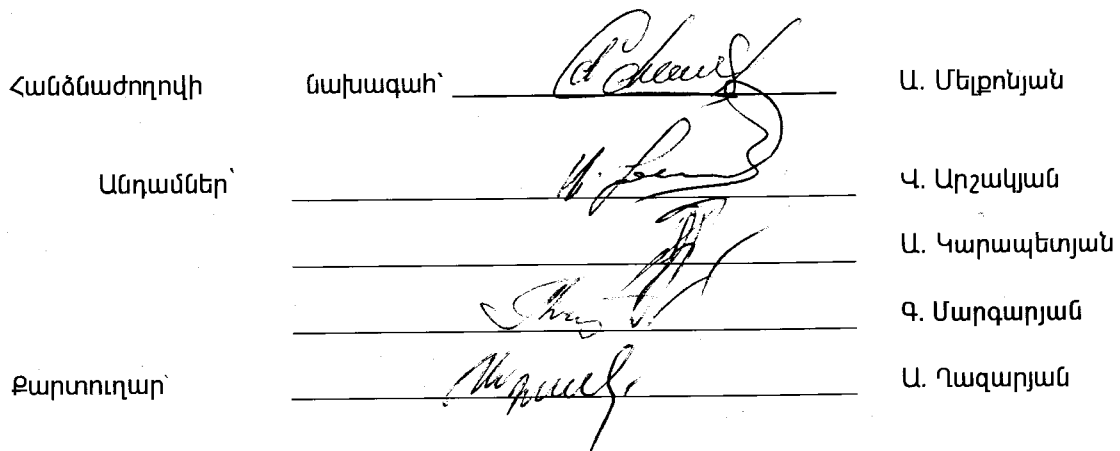 Հանձնաժողովի նախագահ՝ Ա. Մելքոնյան
Անդամներ՝ Վ. Արշակյան
Ա. Կարապետյան
Գ. Մարգարյան
Քարտուղար՝ Ա. Ղազարյան